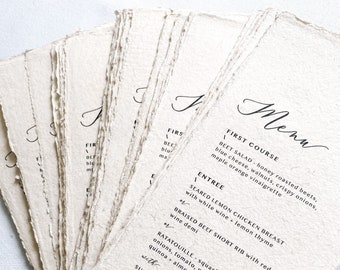 Menu
FIRST COURSE
BEET SALAD - honey roasted beets,
blue cheese, walnuts, crispy onions,
maple orange vinaigrette
ENTREE
SEARED LEMON CHICKEN BREAST
with white wine + lemon thyme
or
BRAISED BEEF SHORT RIB with red
wine demi
or
RATATOUILLE - squa
quinoa - alm
with